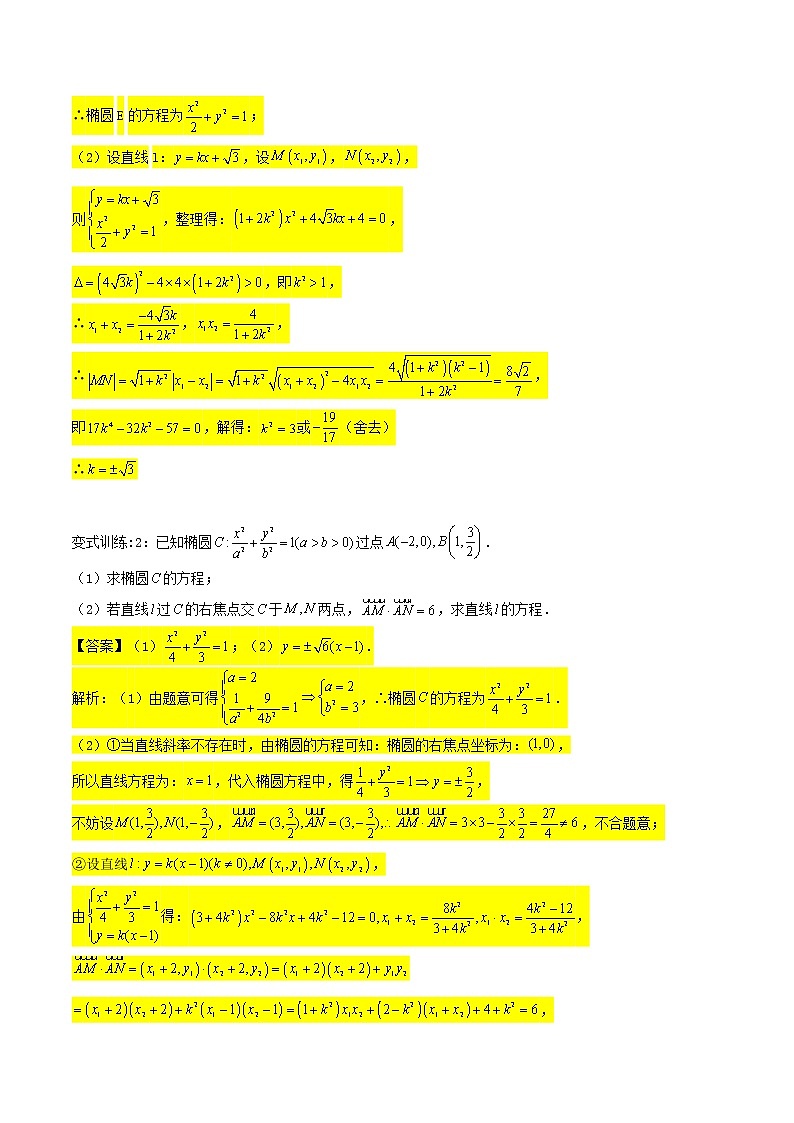 ∴椭圆 E 的方程为 x²/2 + y² = 1；
（2）设直线 l：y = kx + √3，设 M(x₁,y₁)，N(x₂,y₂)，
则 {y = kx + √3, x²/2 + y² = 1，整理得：(1+2k²)x² + 4√3kx + 4 = 0，
Δ = (4√3k)² − 4×4×(1+2k²) > 0，即 k² > 1，
∴ x₁ + x₂ = −4√3k/(1+2k²)，x₁x₂ = 4/(1+2k²)，
∴ |MN| = √(1+k²)|x₁ − x₂| = √(1+k²)√((x₁+x₂)² − 4x₁x₂) = 4√((1+k²)(k²−1))/(1+2k²) = 8√2/7，
即 17k⁴ − 32k² − 57 = 0，解得：k² = 3 或 −19/17（舍去）
∴ k = ±√3
变式训练:2：已知椭圆 C: x²/a² + y²/b² = 1(a > b > 0) 过点 A(−2,0), B(1, 3/2)．
（1）求椭圆 C 的方程；
（2）若直线 l 过 C 的右焦点交 C 于 M,N 两点，AM · AN = 6，求直线 l 的方程．
【答案】（1）x²/4 + y²/3 = 1；（2）y = ±√6(x−1)．
解析：（1）由题意可得 {a = 2, 1/a² + 9/4b² = 1 ⇒ {a = 2, b² = 3，∴椭圆 C 的方程为 x²/4 + y²/3 = 1．
（2）①当直线斜率不存在时，由椭圆的方程可知：椭圆的右焦点坐标为：(1,0)，
所以直线方程为：x = 1，代入椭圆方程中，得 1/4 + y²/3 = 1 ⇒ y = ±3/2，
不妨设 M(1, 3/2), N(1, −3/2)，AM = (3, 3/2), AN = (3, −3/2), ∴ AM · AN = 3×3 − 3/2 × 3/2 = 27/4 ≠ 6，不合题意；
②设直线 l : y = k(x−1)(k ≠ 0), M(x₁,y₁), N(x₂,y₂)，
由 {x²/4 + y²/3 = 1, y = k(x−1) 得：(3+4k²)x² − 8k²x + 4k² − 12 = 0, x₁ + x₂ = 8k²/(3+4k²), x₁ · x₂ = (4k²−12)/(3+4k²)，
AM · AN = (x₁+2, y₁) · (x₂+2, y₂) = (x₁+2)(x₂+2) + y₁y₂
= (x₁+2)(x₂+2) + k²(x₁−1)(x₂−1) = (1+k²)x₁x₂ + (2−k²)(x₁+x₂) + 4 + k² = 6，